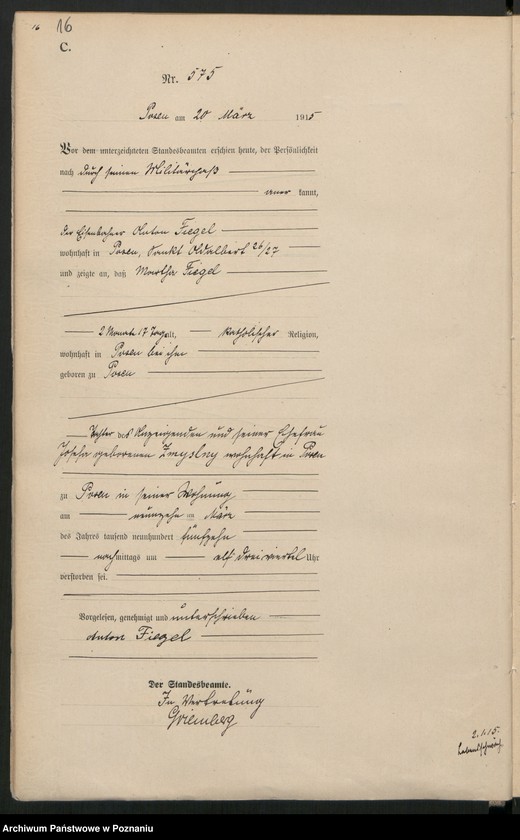 16
16
C.
Nr. 575
Posen am 20 März 1915
Vor dem unterzeichneten Standesbeamten erschien heute, der Persönlichkeit
nach durch seinen Militärpaß
aner kannt,
der Eisenbahner Anton Fiegel
wohnhaft in Posen, Sankt Adalbert 26/27
und zeigte an, daß Martha Fiegel
2 Monate 17 Tage alt, katholischer Religion,
wohnhaft in Posen bei ihm
geboren zu Posen
Tochter des Anzeigenden und seiner Ehefrau
Josefa geborenen Zmyslny wohnhaft in Posen
zu Posen in seiner Wohnung
am neunzehn ten März
des Jahres tausend neunhundert fünfzehn
nachmittags um elf dreiviertel Uhr
verstorben sei.
Vorgelesen, genehmigt und unterschrieben
Anton Fiegel
Der Standesbeamte.
In Vertretung
2.1.15.
Archiwum Państwowe w Poznaniu